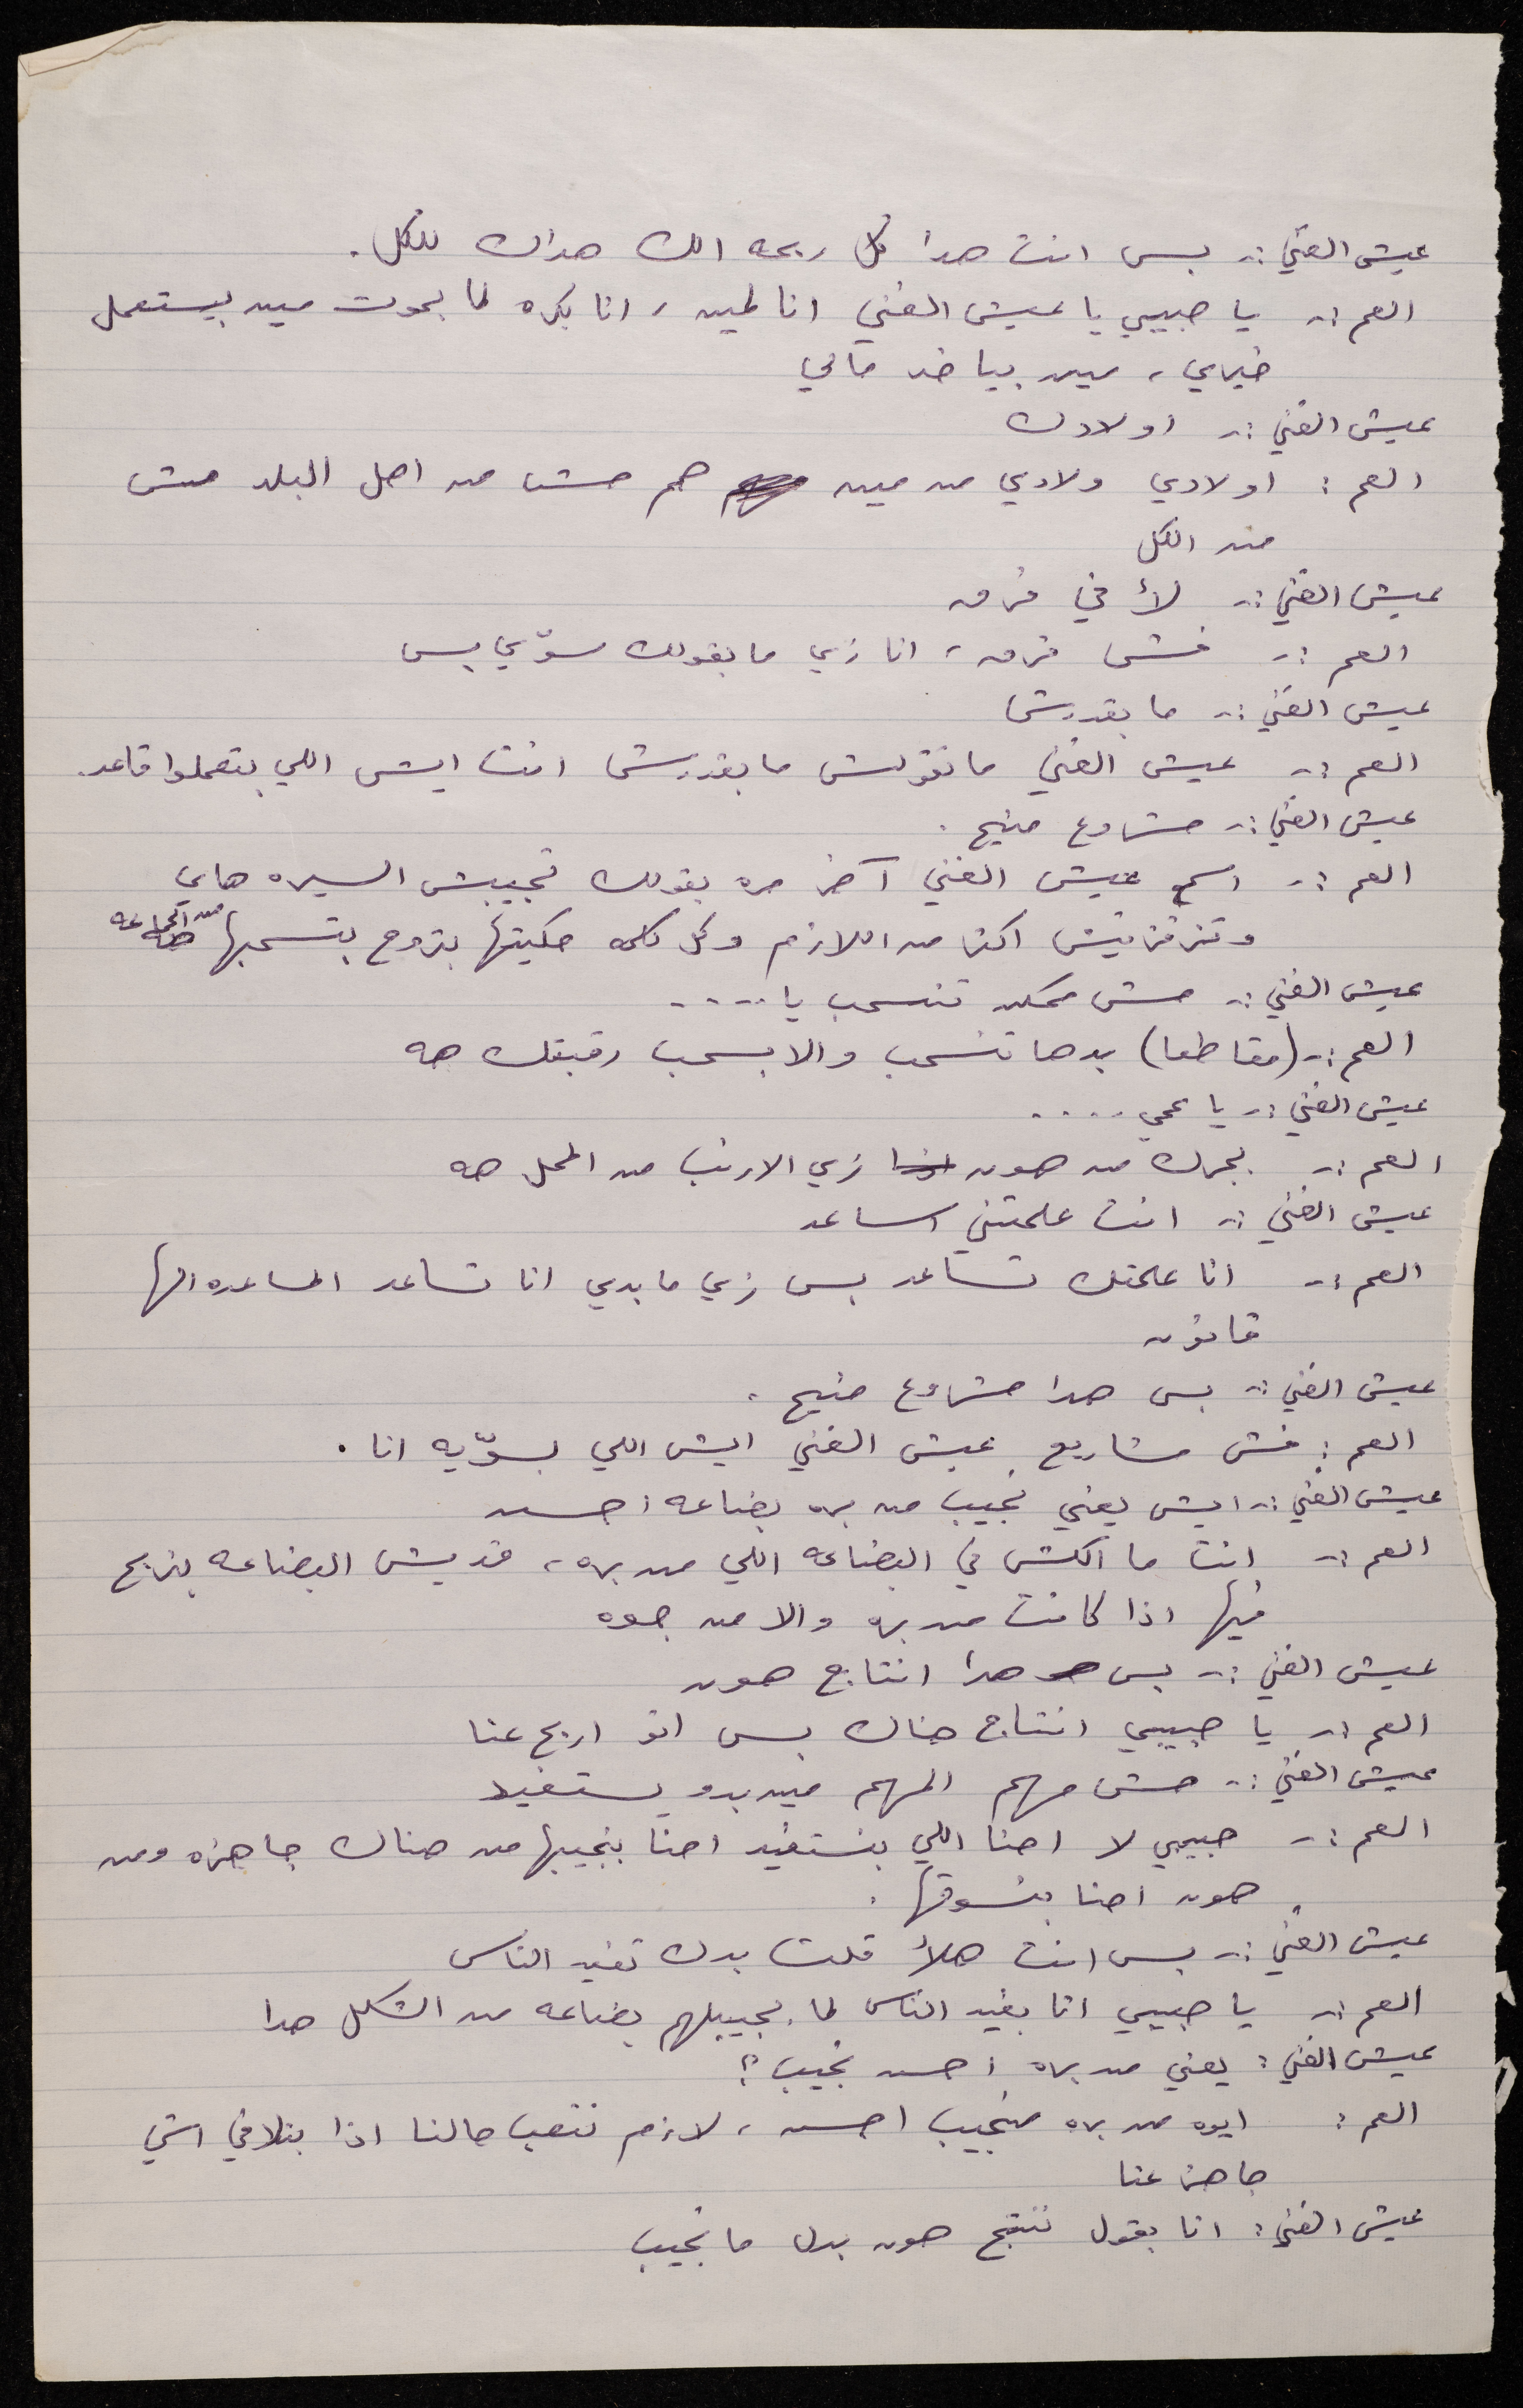 عيش الغني :- بس انت هدا كل ربحه الك هداك للكل .
العم :- يا حبيبي يا عيش الغني انا لمين ، انا بكره لما بموت مين بيستعمل
خيراي ، مين بياخد مالي
عيش الغني :- اولادك
العم : اولادي ولادي من مين هم مش من اهل البلد مش
من الكل
عيش الغني :- لأ في فرق
العم :- فش فرق ، انا زي ما بقولك سوّي بس
عيش الغني :- ما بقدرش
العم :- عيش الغني ما تقولش ما بقدرش انت ايش اللي بتعملوا قاعد
عيش الغني :- مشروع منيح .
العم :- اسمع عيش الغني آخر مره بقولك تجيبش السيره هاي
وتزقزقيش اكتر من اللازم وكل كلمه حكيتها بتروح بتسحبها من الجماعه
عيش الغني :- مش ممكن تنسحب يا .....
العم :- (مقاطعا) بدها تنسحب والا بسحب رقبتك هه
عيش الغني :- يا عمي .....
العم :- بجرك من هون زي الارنب من المحل هه
عيش الغني :- انت علمتني اساعد
العم :- انا علمتك تساعد بس زي ما بدي انا تساعد المساعده الها
قانون
عيش الغني :- بس هدا مشروع منيح .
العم : فش مشاريع عيش الغني ايش اللي بسوّيه انا .
عيش الغني :- ايش يعني نجيب من بره بضاعه احسن
العم :- انت ما الكش في البضاعه اللي من بره ، قديش البضاعه بنربح
فيها اذا كانت من بره والا من جوه
عيش الغني :- بس هدا انتاج هون
العم :- يا حبيبي انتاج هناك بس انو اربح عنا
عيش الغني :- مش مهم المهم مين بدو يستفيد
العم :- حبيبي لا احنا اللي بنستفيد احنا بنجيبها من هناك جاهزه ومن
هون احنا بنسوقها .
عيش الغني :- بس انت هلأ قلت بدك تفيد الناس
العم :- يا حبيبي انا بفيد الناس لما بجيبلهم بضاعه من الشكل هدا
عيش الغني : يعني من بره احسن نجيب ؟
العم : ايوه من بره منجيب احسن ، لازم نتعب حالنا اذا بنلاقي اشي
جاهز عنا
عيش الغني : انا بقول ننتج هون بدل ما نجيب